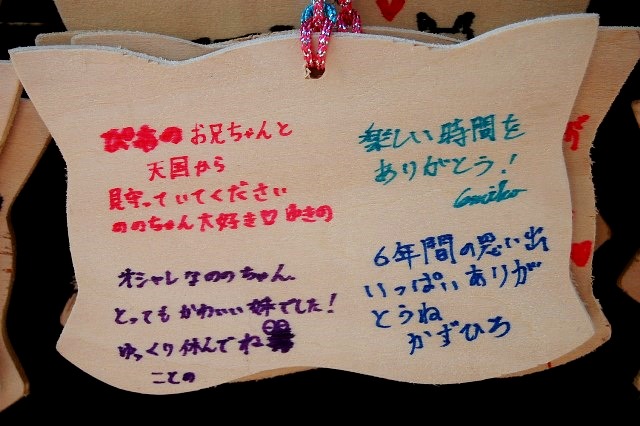 お兄ちゃんと
天国から
見守っていてください
ののちゃん大好き♡ ゆきの
オシャレなののちゃん
とってもかわいい妹でした！
ゆっくり休んでね
ことの
楽しい時間を
ありがとう！
6年間の思い出
いっぱいありが
とうね
かずひろ